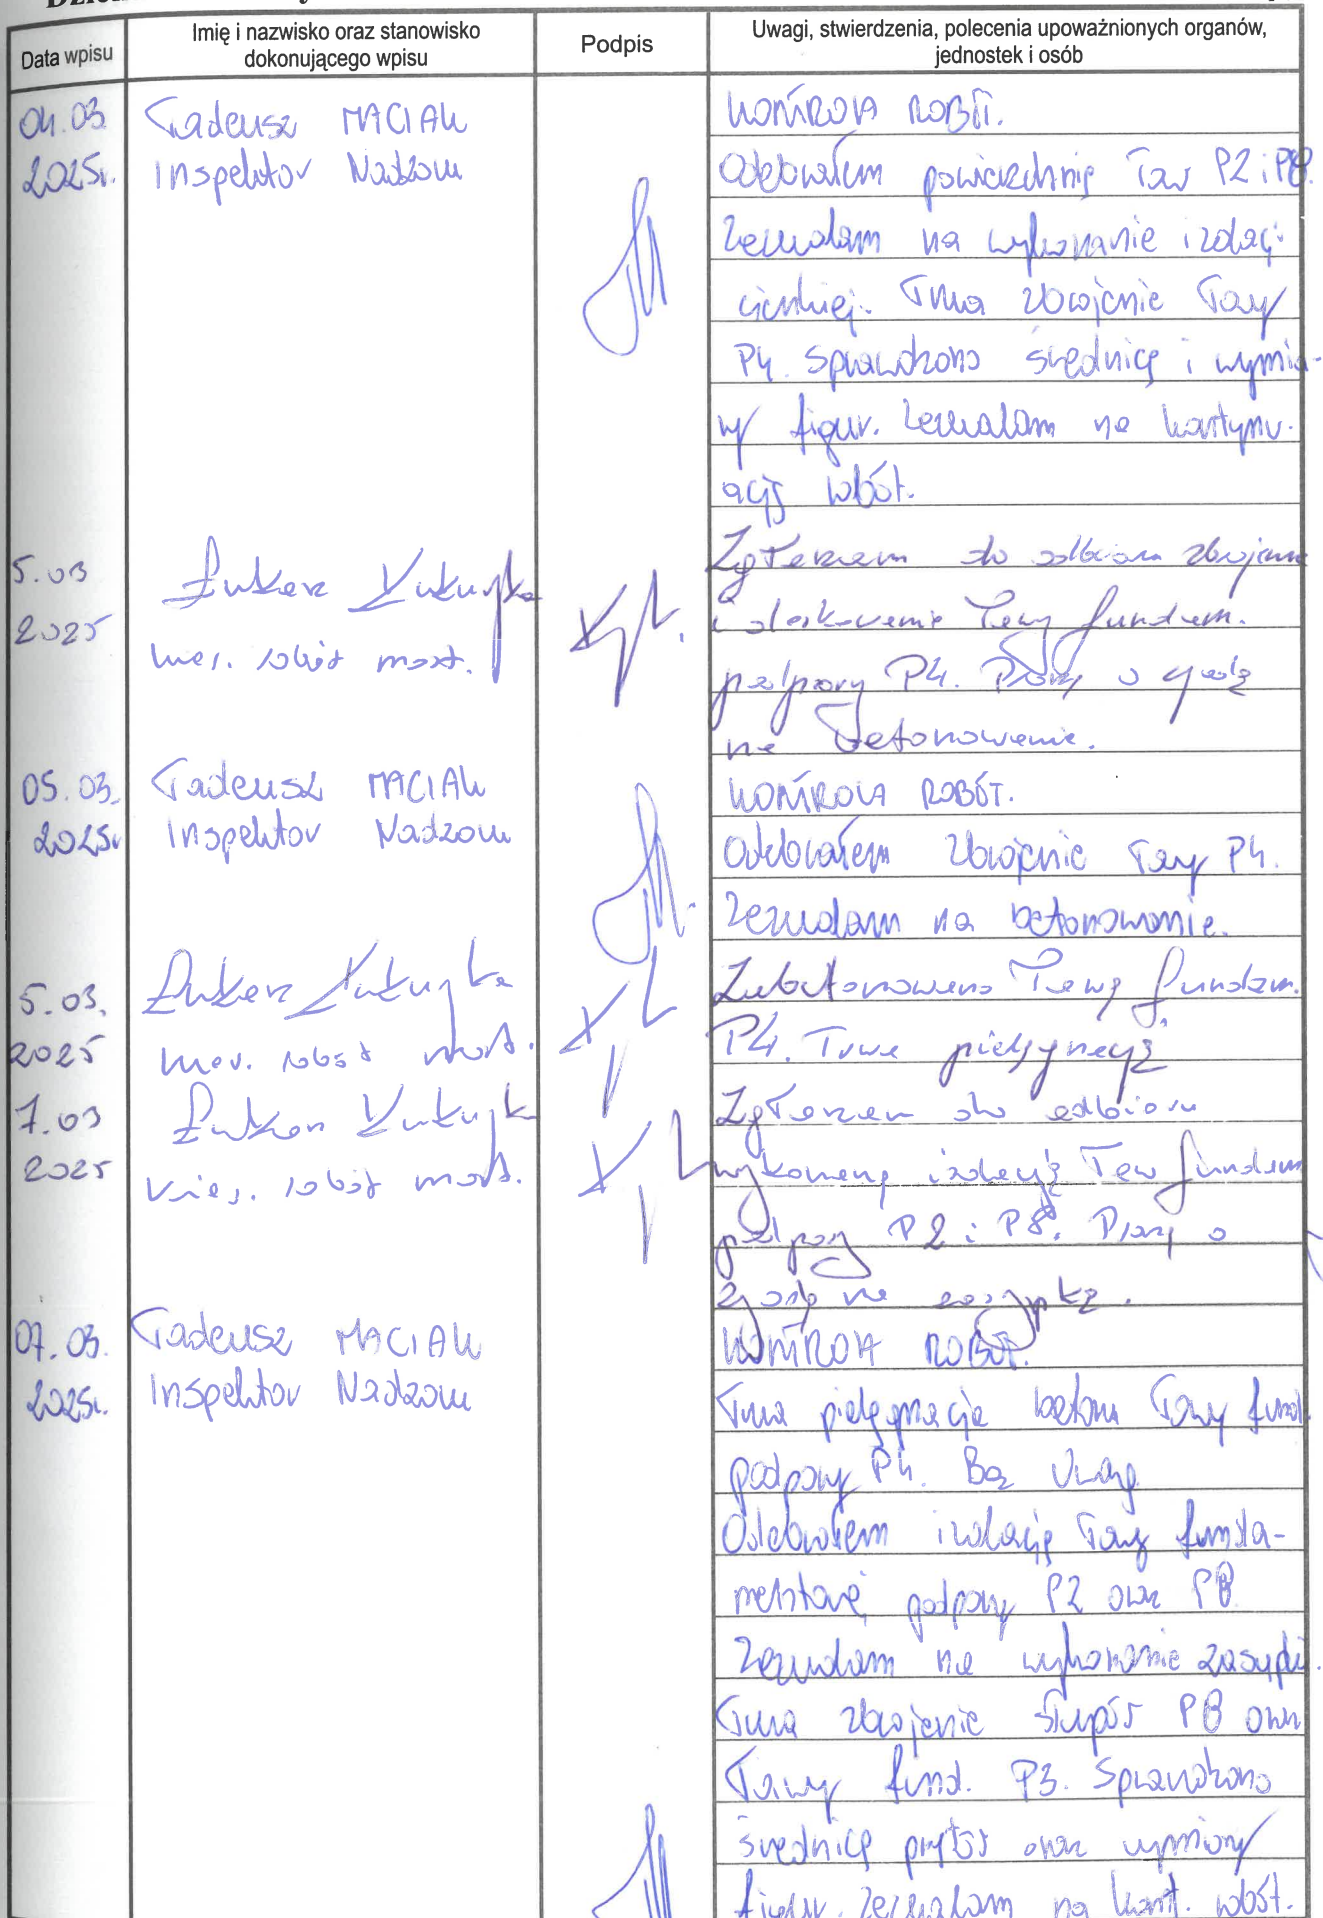 Data wpisu
Imię i nazwisko oraz stanowisko
dokonującego wpisu
Podpis
Uwagi, stwierdzenia, polecenia upoważnionych organów,
jednostek i osób
04.03.
2025r.
Tadeusz MACIAK
Inspektor Nadzoru
KONTROLA ROBÓT.
Odebrałem powierzchnię ław P2 i P8.
Zezwalam na wykonanie izolacji
cienkiej. Trwa zbrojenie ławy
P4. Sprawdzono średnicę i wymia-
ry figur. Zezwalam na kontynu-
ację robót.
5.03
2025
Łukasz
kier. robót most.
Zgłaszam do odbioru zbrojenie
i deskowanie ławy fundam.
podpory P4. Proszę o zgodę
na betonowanie.
05.03.
2025r
Tadeusz MACIAK
Inspektor Nadzoru
KONTROLA ROBÓT.
Odebrałem zbrojenie ławy P4.
Zezwalam na betonowanie.
5.03.
2025
Łukasz
kier. robót most.
Zabetonowano ławę fundam.
P4. Trwa pielęgnacja
7.03
2025
Łukasz
kier. robót most.
Zgłaszam do odbioru
wykonaną izolację ław fundam
podpory P2 i P8. Proszę o
zgodę na zasypkę.
07.03.
2025r.
Tadeusz MACIAK
Inspektor Nadzoru
KONTROLA ROBÓT.
Trwa pielęgnacja betonu ławy fund.
podpory P4. Bez uwag.
Odebrałem izolację ławy funda-
mentowej podpory P2 oraz P8
Zezwalam na wykonanie zasypki.
Trwa zbrojenie słupów P8 oraz
ławy fund. P3. Sprawdzono
średnicę prętów oraz wymiary
figur. Zezwalam na kont. robót.